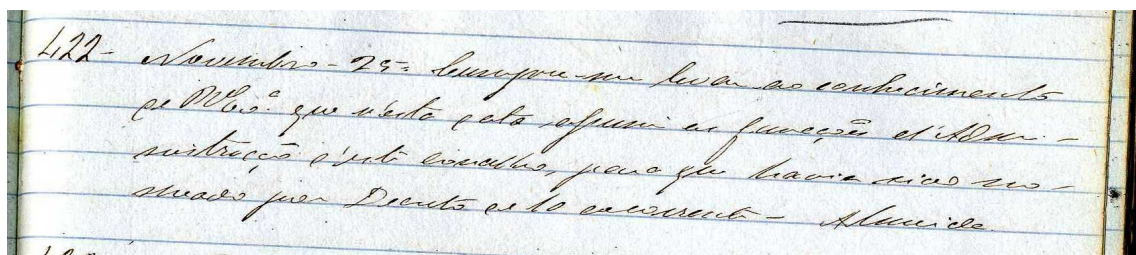 422- Novembro - 25= Cumpre-me levar ao conhecimento
de V. Exª. que n'esta data assumi as funcções d'Admi-
nistração d'este concelho, para que havia sido no-
meado por Decreto de 10 do corrente - Almeida